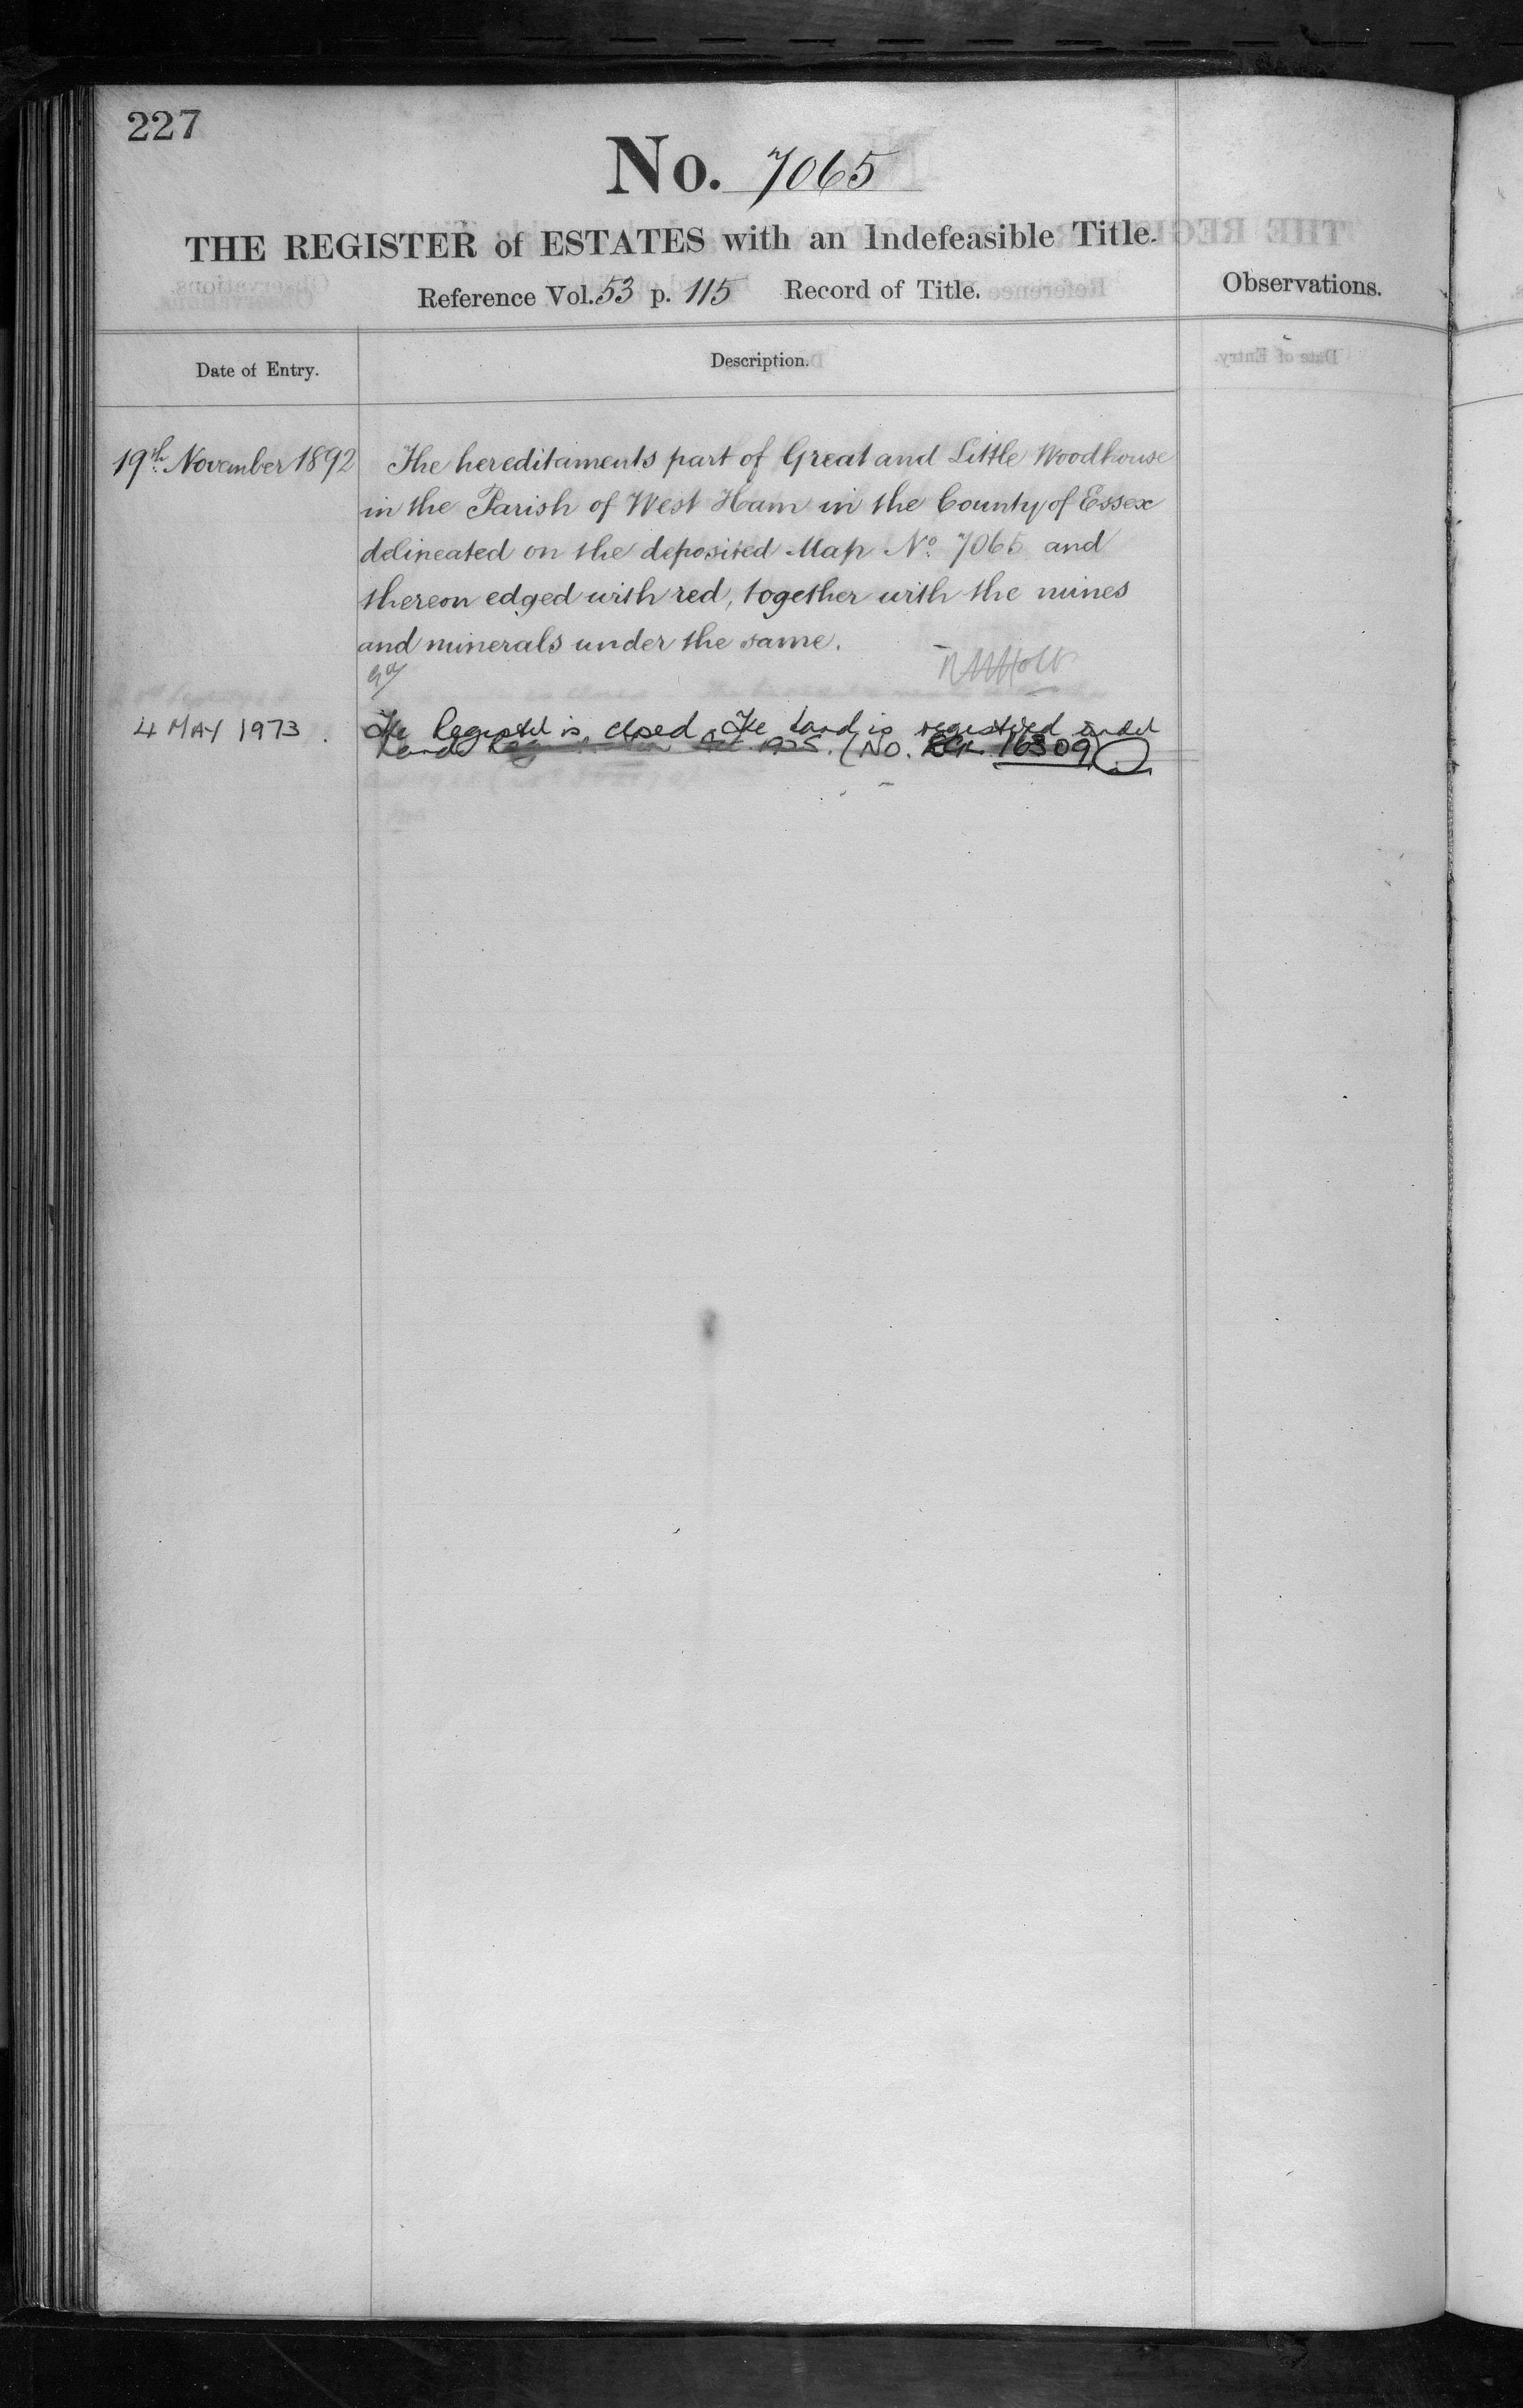 227
No. 7065
THE REGISTER of ESTATES with an Indefeasible Title.
Reference Vol. 53 p. 115 Record of Title.
Observations.
Date of Entry.
Description.
19th November 1892
The hereditaments part of Great and Little Woodhouse
in the Parish of West Ham in the County of Essex
delineated on the deposited Map No. 7065 and
thereon edged with red, together with the mines
and minerals under the same.
4 MAY 1973.
The Register is closed. The land is registered under
Land Registration Act 1925. (NO. 16309)